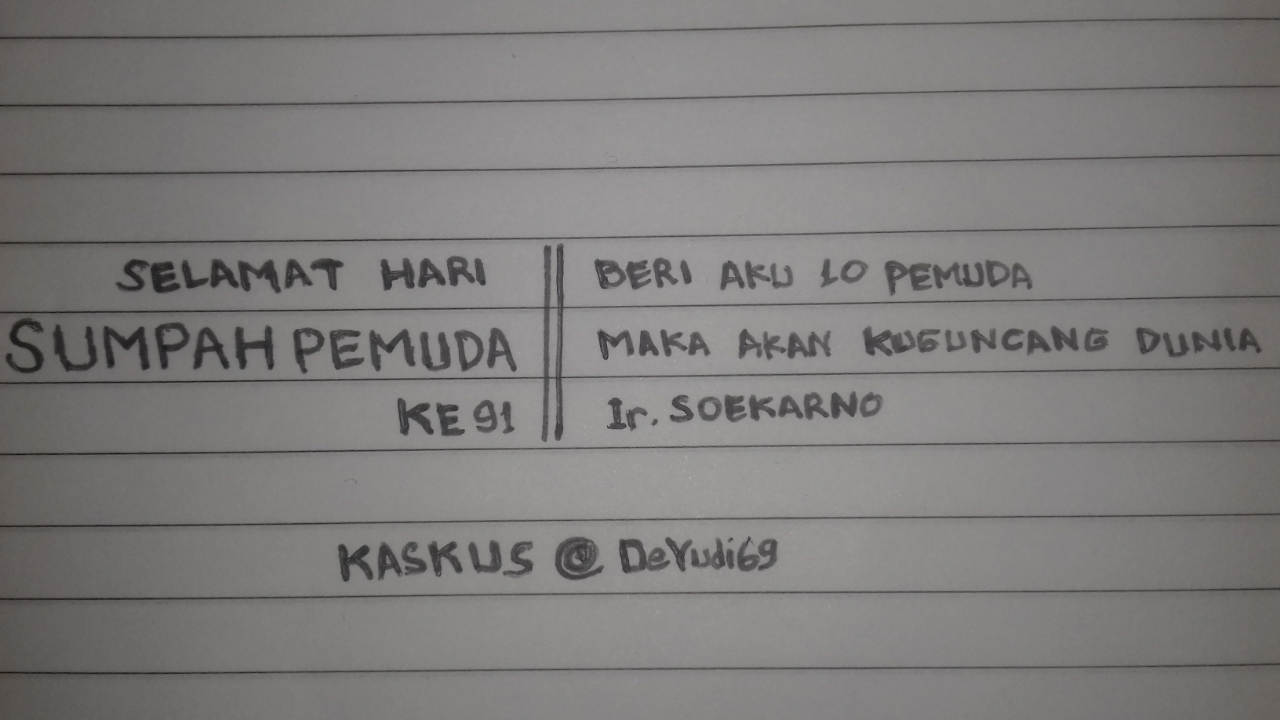 SELAMAT HARI
SUMPAH PEMUDA
KE 91
BERI AKU 10 PEMUDA
MAKA AKAN KUGUNCANG DUNIA
Ir. SOEKARNO
KASKUS @ DeYudi69